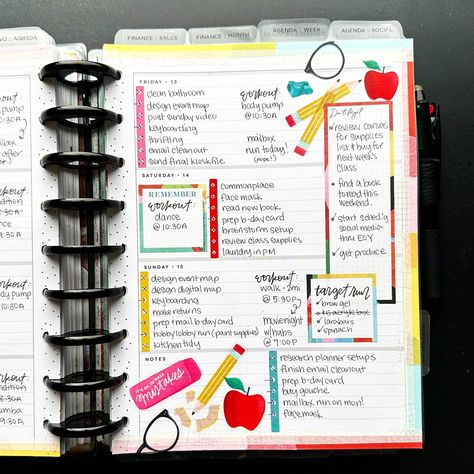 FINANCE :: SALES
FINANCE :: MONTH
AGENDA :: WEEK
AGENDA :: SOCIAL
workout
body pump
@ 10:30A
FRIDAY • 13
clean bathroom
design event map
post sunday video
keyboarding
thrifting
email cleanout
send final klosk file
workout
body pump
@10:30A
mailbox
run today!
(nope!)
Don't forget
review canvas
for supplies
list & buy for
next week's
class
find a book
to read this
weekend.
start sched'g
social media
thru EOY
get produce
SATURDAY • 14
REMEMBER
workout:
dance
@ 10:30A
commonplace
face mask
read new book
prep b-day card
brainstorm setup
review class supplies
laundry in PM
SUNDAY • 15
design event map
design digital map
keyboarding
make returns
prep & mail b-day card
hobby lobby run (paint supplies)
kitchen tidy
workout:
walk - 2mi
@ 5:30p
movie night
w/ hubs
@ 7:00P
target run
brow gel
larabars
spinach
NOTES
IT'S OK TO MAKE
mistakes
research planner setups
finish email cleanout
prep b-day card
buy gouache
mailbox run on mon!
face mask